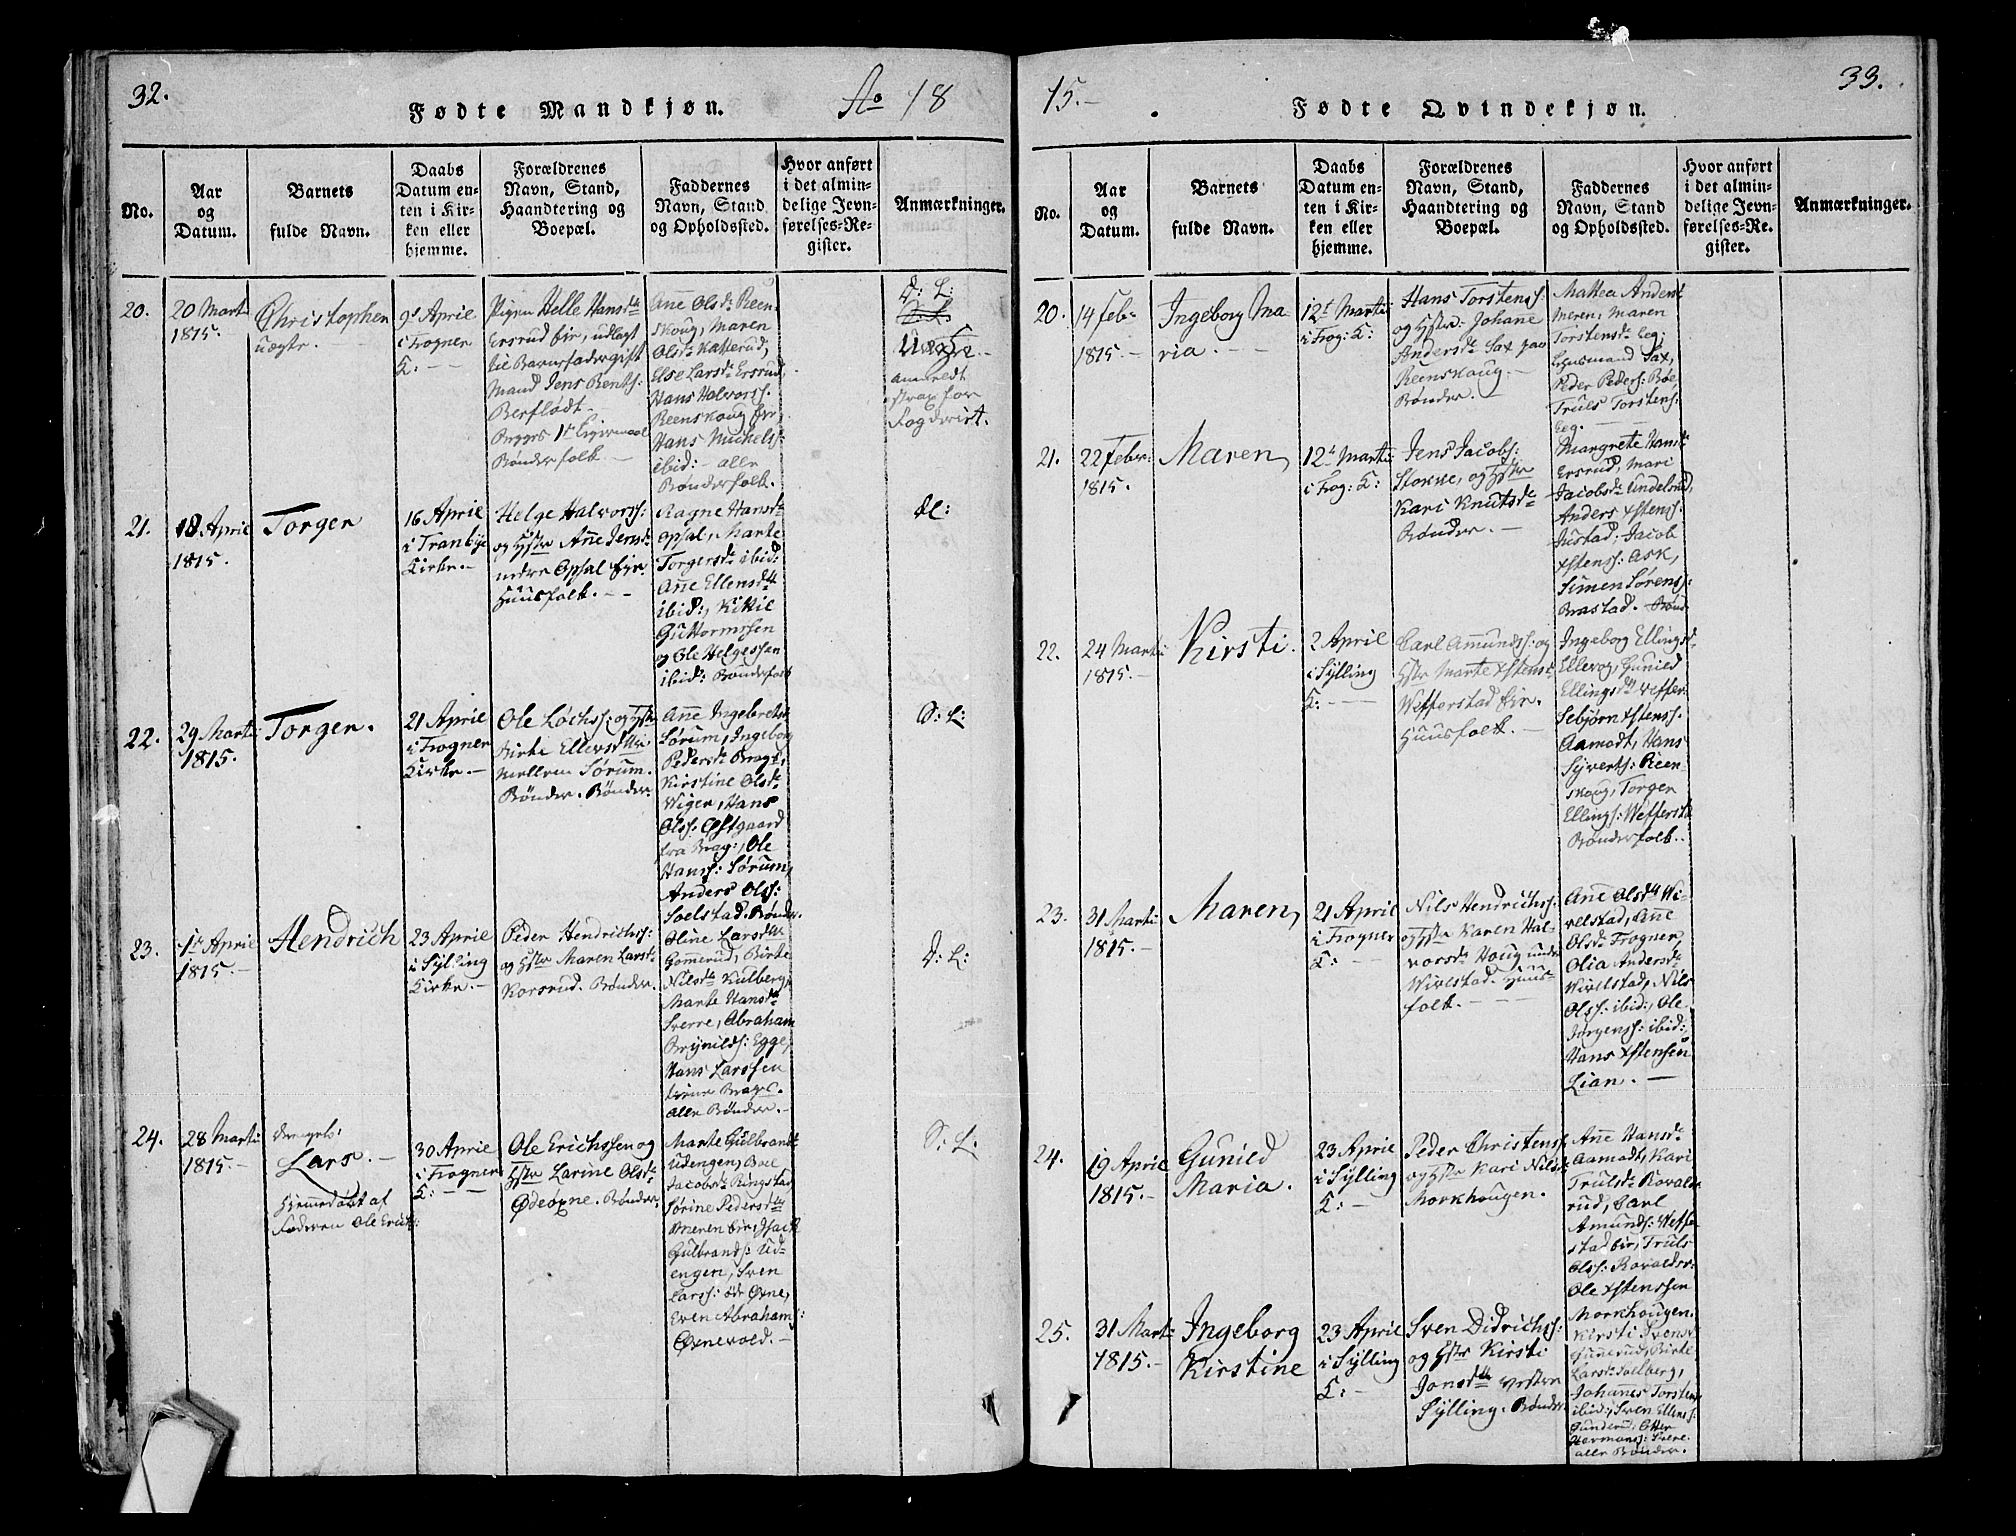 32.
Fødte Mandkjøn.
Ao 18
No.
Aar
og
Datum.
Barnets
fulde Navn.
Daabs
Datum en-
ten i Kir-
ken eller
hjemme.
Forældrenes
Navn, Stand,
Haandtering og
Boepæl.
Faddernes
Navn, Stand
og Opholdssted.
Hvor anført
i det almin-
delige Jevn-
førelses-Re-
gister.
Anmærkninger.
20.
20 Marti
1815.
Christophen
uægte.
9d April
i Frogner
K:
Pigen Helle Hansdtr
Ersrud Eir, udlagt
til Barnefader gift
Mand Jens Bentss:
Berflødt.
Begges 1te Leiermaal
Bønderfolk.
Ane Olsdr Reen-
skoug, Maren
Olsdr Katterud,
Else Larsdr Ersrud,
Hans Halvorss:
Reenskoug Eir,
Hans Michelss:
ibid: alle
Bønderfolk.
D: L:
Uægte.
anmeldt
strax for
Fogderiet.
21.
18 April
1815.
Torger
16 April
i Tranbye
Kirke.
Helge Halvorss:
og Hstr Ane Jensdr
nedre Opsal Eir.
Huusfolk.
Ragne Hansdr
Opsal, Marte
Torgersdr ibid:
Ane Ellensdtr
ibid:, Kittil
Guttormssen
og Ole Helgessen
ibid: Bønderfolk
22.
29 Marti
1815.
Torger.
21 April
i Frogner
Kirke.
Ole Løchss: og Hstr
mellem Sørum.
Bønder. Bønder.
Ane Ingebretsdr
Sørum, Ingeborg
Pedersdr Brage,
Kirstine Olsdr
Wiger, Hans
Olss: Østgaard
fra Brag:, Ole
Hanss: Sørum,
Anders Olss:
Solstad. Bønder.
D: L:
23.
1te April
1815.
Hendrich
23 April
i Sylling
Kirke.
Peder Hendrichss:
og Hstr Maren Larsdr
Korsrud. Bønder.
Oline Larsdtr
Gomerud, Birte
Nilsdr Kulberg,
Marte Hansdr
Sverre, Abraham
Brynilds: Egge,
Hans Larssen
Brage.
alle Bønder.
D: L:
24.
28 Marti
1815.
Lars.
Hiemedøbt af
Faderen Ole Erichss:
30 April
i Frogner
K:
Ole Erichssen og
Hstr Larine Olsdr
Ødeøxne. Bønder
Marte Gulbrandsdr
Udengen, Boel
Jacobsdr Ringstad
Sørine Pedersdtr
Meren Eir, Isack
Gulbrands: Ud-
engen, Sven
Larss: øde Øxne,
Even Abrahams:
Øxnevold.
D: L:
15.
33.
Fødte Qvindekjøn.
No.
Aar
og
Datum.
Barnets
fulde Navn.
Daabs
Datum en-
ten i Kir-
ken eller
hjemme.
Forældrenes
Navn, Stand,
Haandtering og
Boepæl.
Faddernes
Navn, Stand
og Opholdssted.
Hvor anført
i det almin-
delige Jevn-
førelses-Re-
gister.
Anmærkninger.
20.
14 Feb:
1815.
Ingeborg Ma
ria.
12te Marti
i Frog: K:
Hans Torstenss:
og Hstr: Johane
Andersdr Sax paa
Reenskoug.
Bønder.
Mattea Andersdr
Meren, Maren
Torstensdr Eeg,
Lensmand Sax,
Peder Peders: Bøe,
Truls Torstens:
Eeg.
21.
22 Febr:
1815.
Maren
12te Marti
i Frog: K:
Jens Jacobs:
Stokke, og Hstr
Kari Knutsdr
Bønder.
Margrete Hansdr
Ersrud, Mari
Jacobsdr Undelsrud,
Anders Xstenss:
Justad, Jacob
Xstenss: Ask,
Simen Sørens:
Brastad. Bønd:
22.
24 Marti
1815.
Kirsti.
2 April
i Sylling
K:
Carl Amundss: og
Hstr Marte Xstensdr
Wefferstad Eir.
Huusfolk.
Ingeborg Ellingsdr
Ellevog, Gunild
Ellingsdtr Weffer:
Sebjørn Xstenss.
Aamodt, Hans
Syverts: Reen-
skoug, Torger
Ellings: Wefferst:
Bønderfolk.
23.
31 Marti
1815.
Maren
21 April
i Frogner
K:
Nils Hendrichss:
og Hstr Karen Hal-
vorsdr Houg under
Wivelstad. Huus-
folk.
Ane Olsdtr Wi-
velstad, Ane
Olsdr Frogner,
Olia Andersdr
Wivelstad, Nils
Olss: ibid:, Ole
Jørgenss: ibid:
Hans Xstensen
Lian.
24.
19 April
1815.
Gunild
Maria.
23 April
i Sylling
K:
Peder Christenss:
og Hstr Kari Nilsdr
Morkhougen.
Ane Hansdr
Aamodt, Kari
Trulsdr Rovalds-
rud, Carl
Amunds: Weffer-
stad Eir, Truls
Olss: Rovaldsr:
Ole Xstenssen
Morkhougen.
25.
31 Marti
1815.
Ingeborg
Kirstine
23 April
i Sylling
K:
Sven Didrichss:
og Hstr Kirsti
Jonsdtr Vestre
Sylling. Bønder
Kirsti Svensdr
Gunerud, Birte
Larsdr Solberg,
Johanes Torstens:
ibid:, Sven Ellens:
Gunderud, Otter
Hermans: Sverre.
alle Bønder.